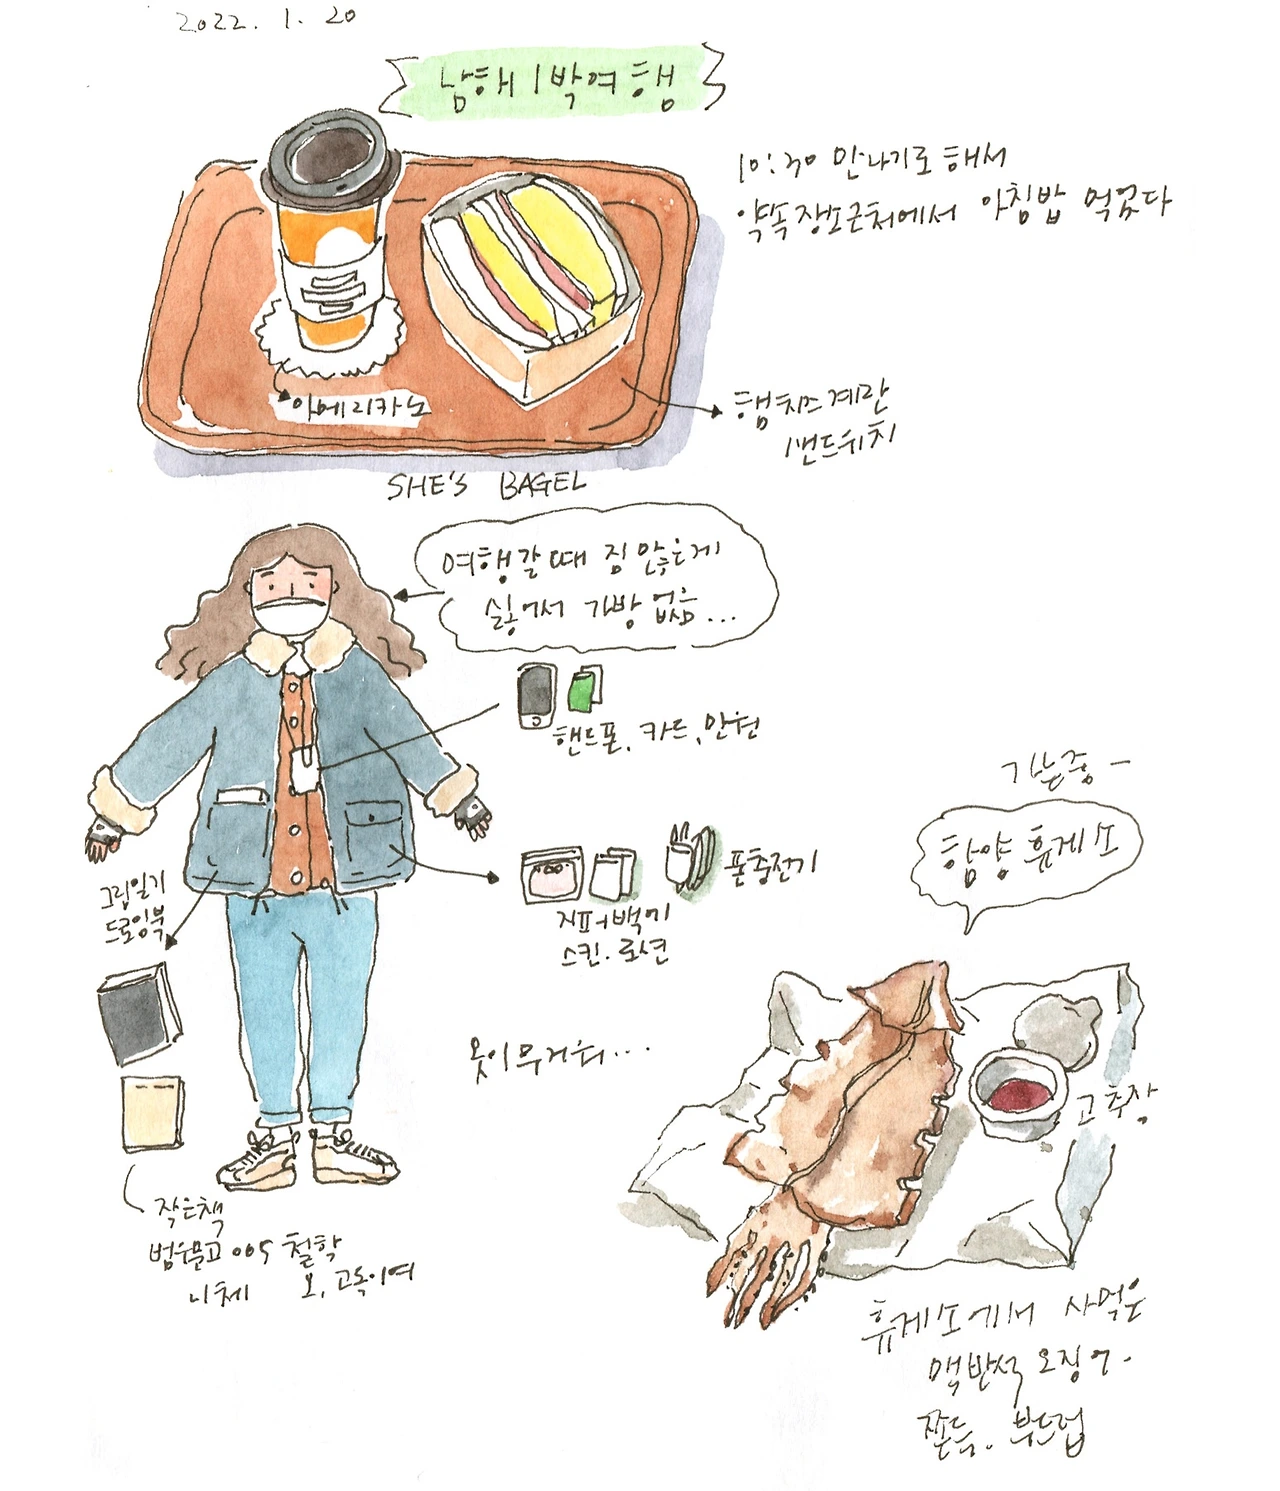 2022. 1. 20
남해 1박여행
10:30 만나기로 해서
약속장소근처에서 아침밥 먹었다
아메리카노
햄치즈계란
샌드위치
SHE'S BAGEL
여행갈때 짐 많은게
싫어서 가방 없음...
핸드폰, 카드, 만원
그림일기
드로잉북
지퍼백에
스킨. 로션
폰충전기
옷이 무거워...
작은책
범우문고 005 철학
니체 오, 고독이여
가는중-
함양 휴게소
고추장
휴게소에서 사먹은
맥반석 오징어.
쫀득. 부드럽